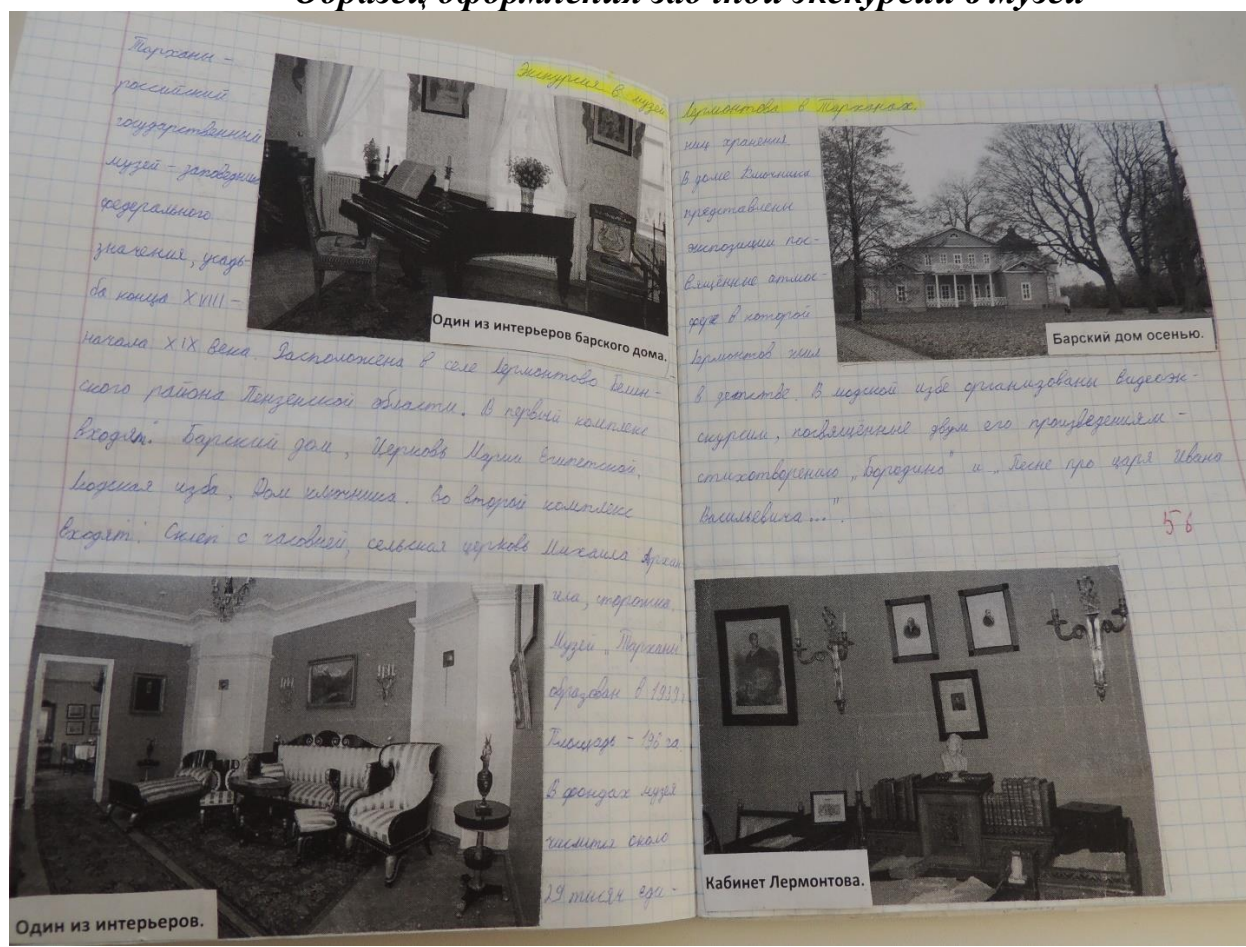 Образец оформления заочной экскурсии в музей
Экскурсия в музей
Лермонтова в Тарханах.
Тарханы –
российский
государственный
музей – заповедник
федерального
значения, усадь-
ба конца XVIII –
начала XIX века. Расположена в селе Лермонтово Белин-
ского района Пензенской области. В первый комплекс
входят: Барский дом, Церковь Марии Египетской,
Людская изба, Дом ключника. Во второй комплекс
входят: Склеп с часовней, сельская церковь Михаила Архан
гела, сторожка.
Музей „Тарханы"
образован в 1939.
Площадь – 196 га.
В фондах музея
числится около
29 тысяч еди-
Один из интерьеров барского дома.
Один из интерьеров.
ниц хранения
В доме Ключника
представлены
экспозиции пос-
вящённые атмос-
фере в которой
Лермонтов жил
в детстве. В людской избе организованы видеоэк-
скурсии, посвящённые двум его произведениям –
стихотворению „Бородино" и „Песне про царя Ивана
Васильевича...".
5б
Барский дом осенью.
Кабинет Лермонтова.